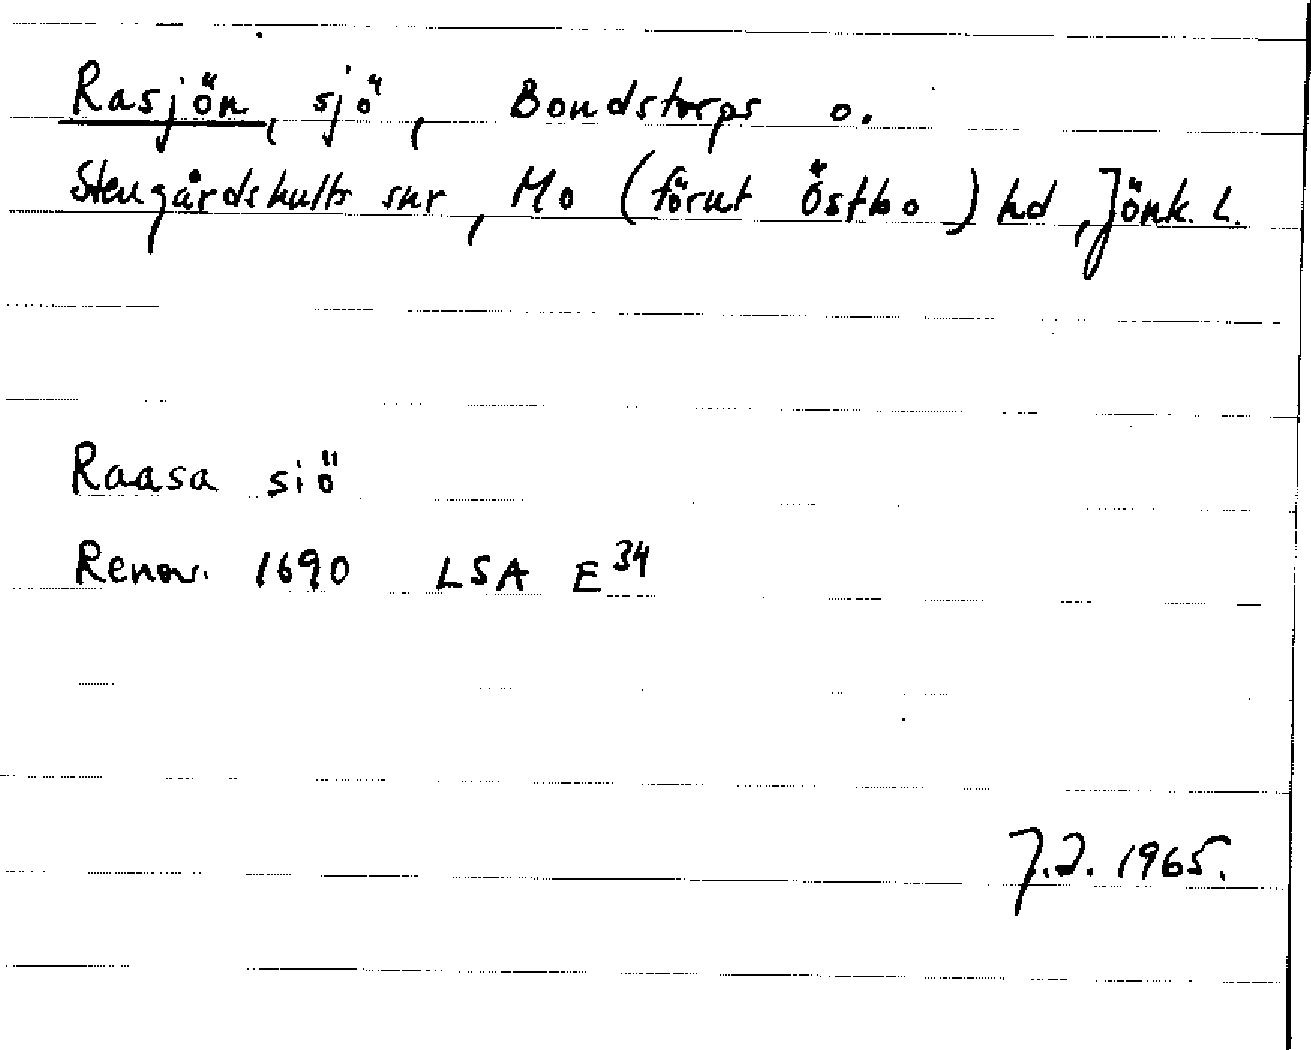 Rasjön, sjö, Bondstorps o.
Stengårdshults snr, Mo (förut Östbo) hd, Jönk. L.
Raasa siö
Renov. 1690 LSA E34
7.2. 1965.